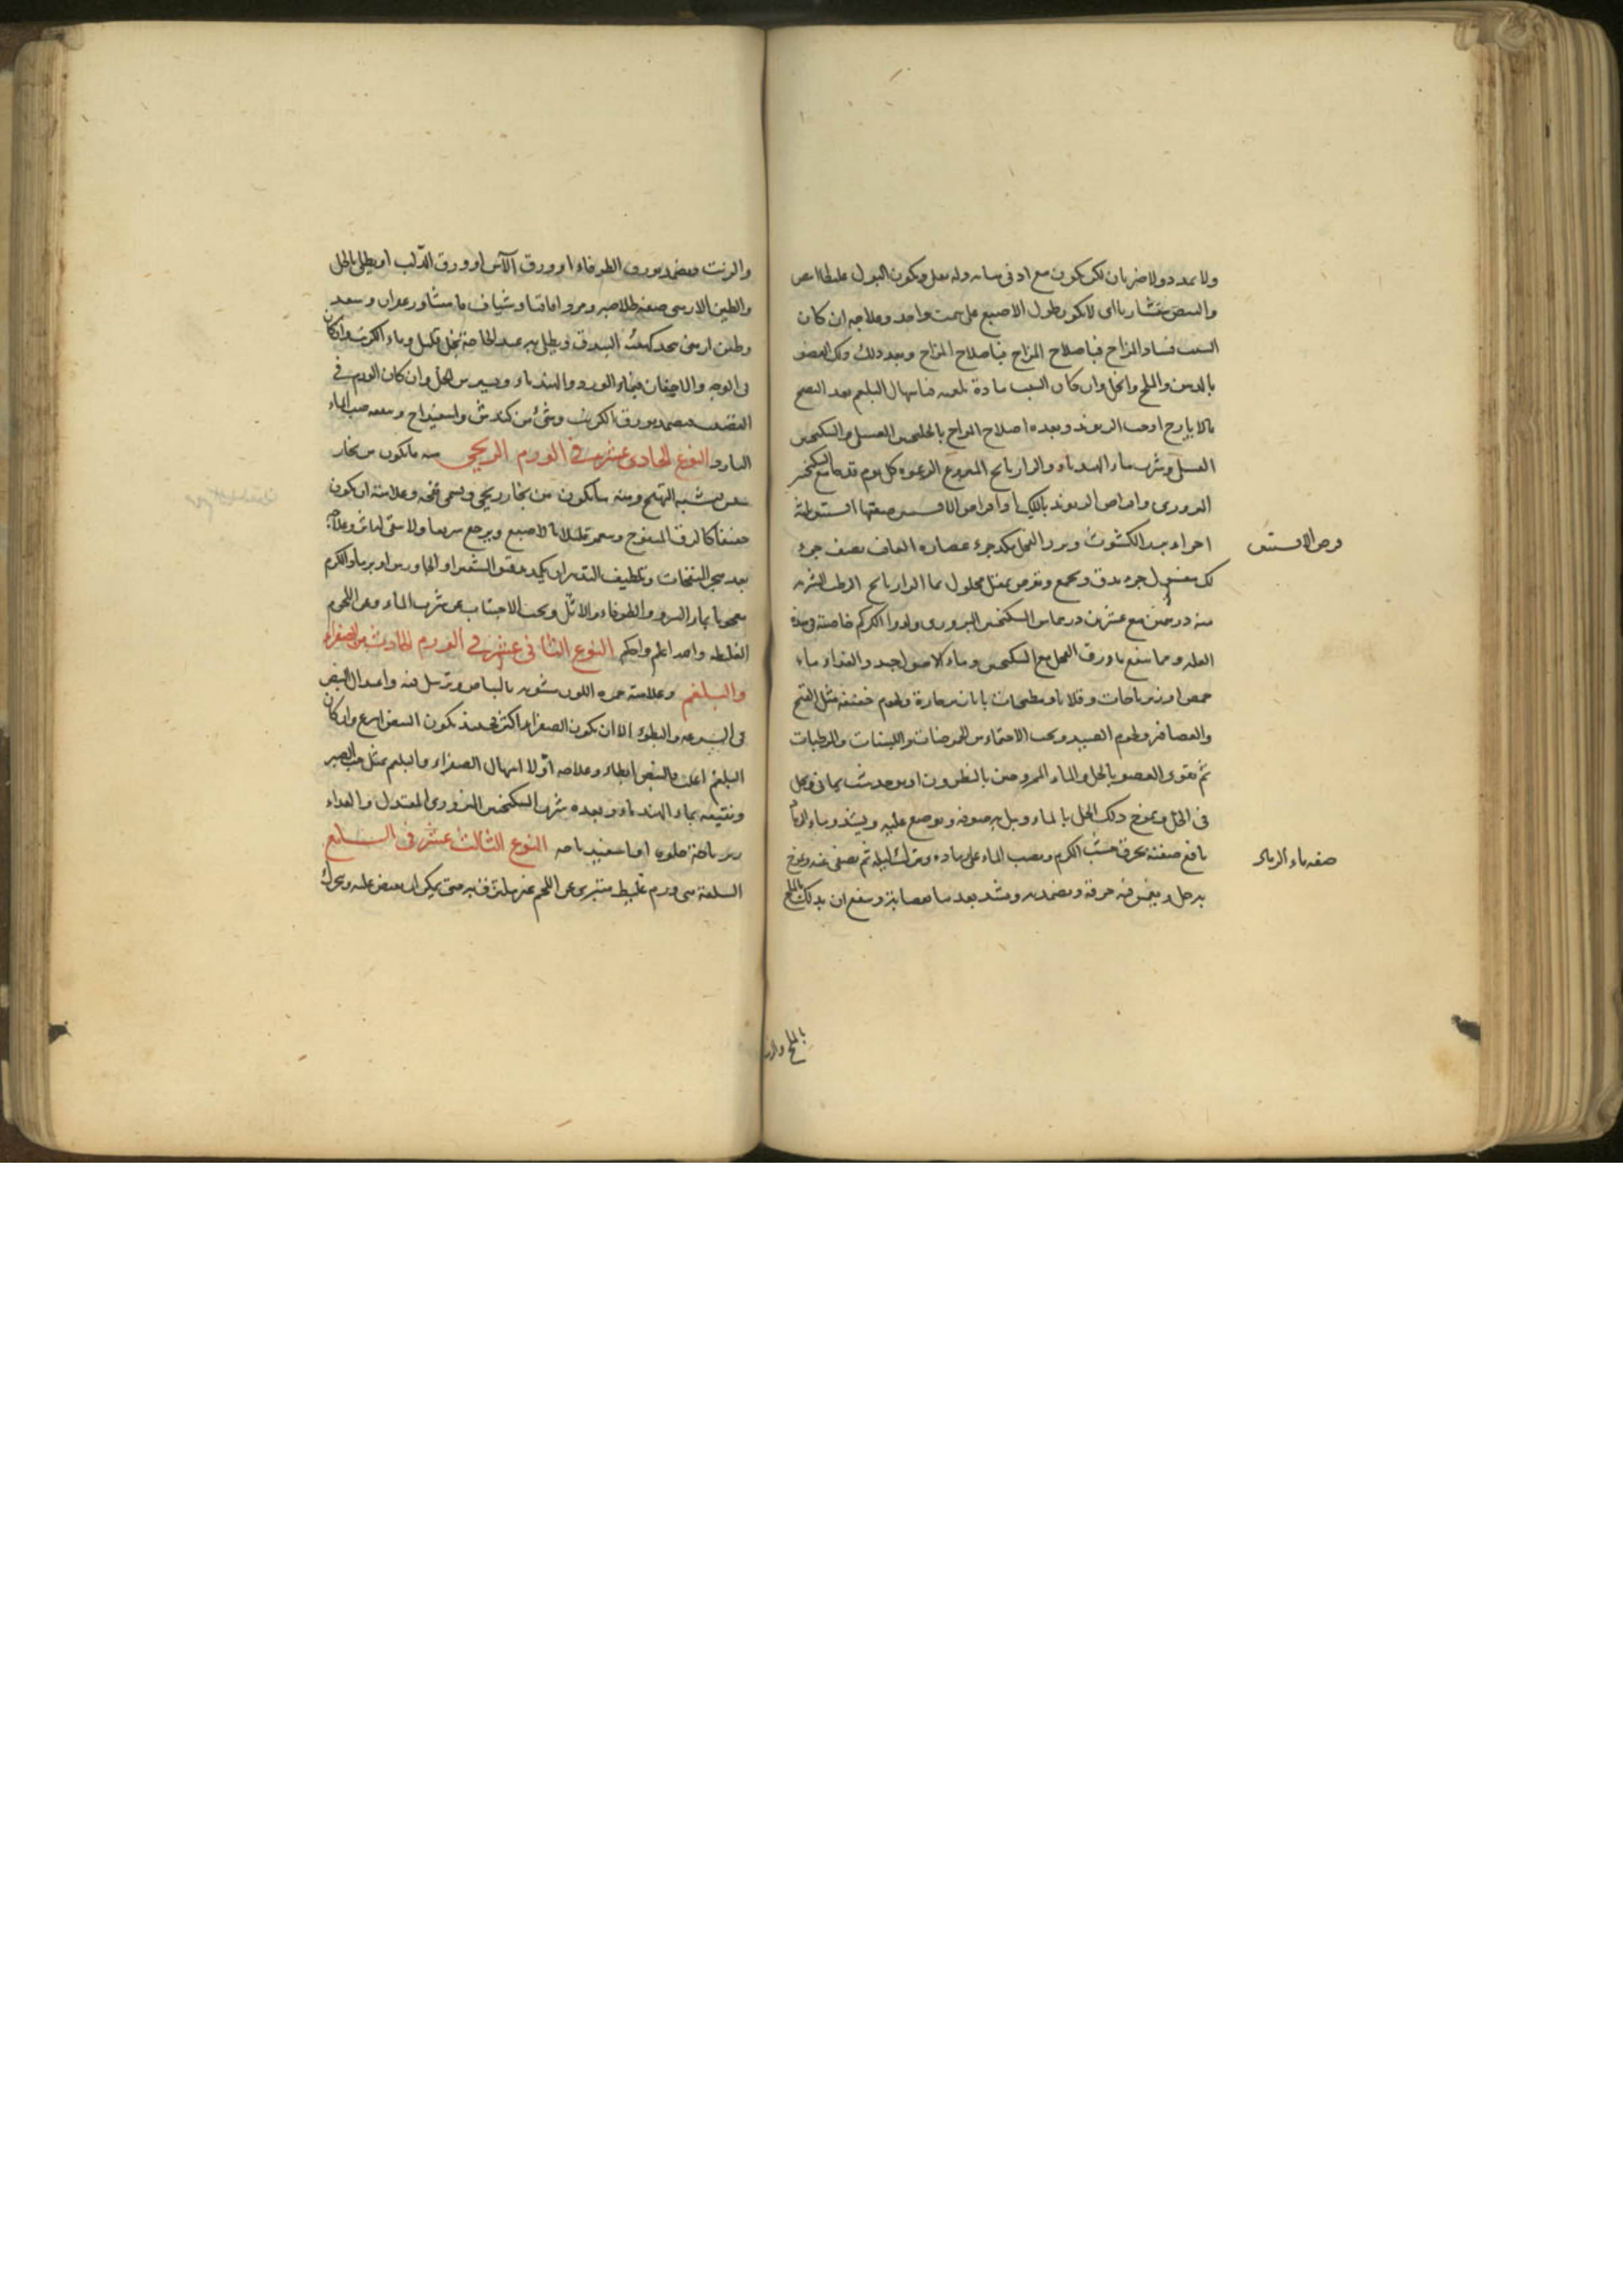 ولا تمدد ولا ضربان لكن يكون مع ادنى ويكون البول غليظا ابيض
والنبض اى لا يكون بطول الاصبع على سمت واحد وعلاجه ان كان
السبب فساد المزاج فباصلاح المزاج فباصلاح المزاج وبعد ذلك ذلك العضو
بالدهن والملح والخل وان كان السبب مادة بلغميه فباسهال البلغم بعد النضج
بالايارج او حب الريوند وبعده اصلاح المزاج العسلى والسكنجبين
العسلى وشرب ماء الهندباء والرازيانج كل يوم مع السكنجبين
البزورى واقراص الريوند او اقراص الافسنتين صفتها افسنتين ثلثة
اجزاء بزر الكشوث وبزر الفجل كل جزء عصارة الغافت نصف جزء
لك مغسول جزء يدق ويجمع ويقرص بمثل محلول بماء الرازيانج الرطب الشربه
منه درهمين مع عشرين درهما من السكنجبين البزورى ودواء الكركم خاصة فى هذه
العله ومما ينفع ماء ورق الفجل مع السكنجبين وماء الاصول جيد والغذاء ماء
حمص او زيرباجات وقلايا ومطجنات حارة ولحوم خفيفه مثل القبج
والعصافير ولحوم الصيد ويجب الاحتماء من الحموضات واللبنات والرطبات
ثم يقوى العضو بالخل والماء الممزوجين بالنطرون او يوخذ شب يمانى ويحل
فى الخل ويمزج ذلك الخل بالماء ويبل به صوفه ويوضع عليه ويشد وماء الرماد
نافع صفته يحرق خشب الكرم ويصب الماء على رماده ويترك ليلة ثم يصفى عنه ويمزج
به خل ويغمس فيه خرقة ويضمد به ويشد بعدها بعصابة وينفع ان يدلك بالملح
قرص الافسنتين
صفه ماء الرماد
بالملح والزيت
والزيت ويضمد بورق الطرفاء او ورق الآس او ورق الدلب او يطلى بالخل
والطين الارمنى صفة طلا صبر ومر واقاقيا وشياف ماميثا وزعفران وسعد
وطين ارمنى يتخذ كهيئة البندق ويطلى به عند الحاجة بخل قليل وماء الكرنب وان كان
فى الوجه والاجفان فبماء الورد والهندباء ويسير من الخل وان كان الورم فى
العصب يضمد بورق الكرنب وشئ من كندش واسفيداج وينفعه صب الماء
البارد النوع الحادى عشر فى الورم الريحى منه ما يكون من بخار
يشبه التهيج ومنه ما يكون من بخار ريحى ويسمى نفخه وعلامته ان يكون
خفيفا كالزق المنفوخ وينغمز قليلا بالاصبع ويرجع سريعا ولا يبقى اثر وعلاجه
بعد هجر المنفخات وتلطيف التدبير ان يكمد بدقيق الشعير او الجاورس او برماد الكرم
معجونا بماء السرو والطرفاء والاثل ويجب الاجتناب عن شرب الماء وعن اللحوم
الغليظه واحد اعلم واحكم النوع الثانى عشر فى الورم الحادث من الصفراء
والبلغم وعلامته حمره اللون مشوبه بالبياض وترهل فيه واعتدال النبض
فى السرعه والبطوء الا ان يكون الصفراء اكثر فحينئذ يكون النبض اسرع وان كان
البلغم اغلب فالنبض ابطاء وعلاجه اولا اسهال الصفراء والبلغم بمثل حب الصبر
ونقيعه بماء الهندباء وبعده شرب السكنجبين البزورى المعتدل والغذاء
زيرباجة حلوه او اسفيدباجه النوع الثالث عشر فى السلع
السلعة هى ورم غليظ متبرى عن اللحم غير ملتزق به حتى يمكن ان يقبض عليه ويحرك